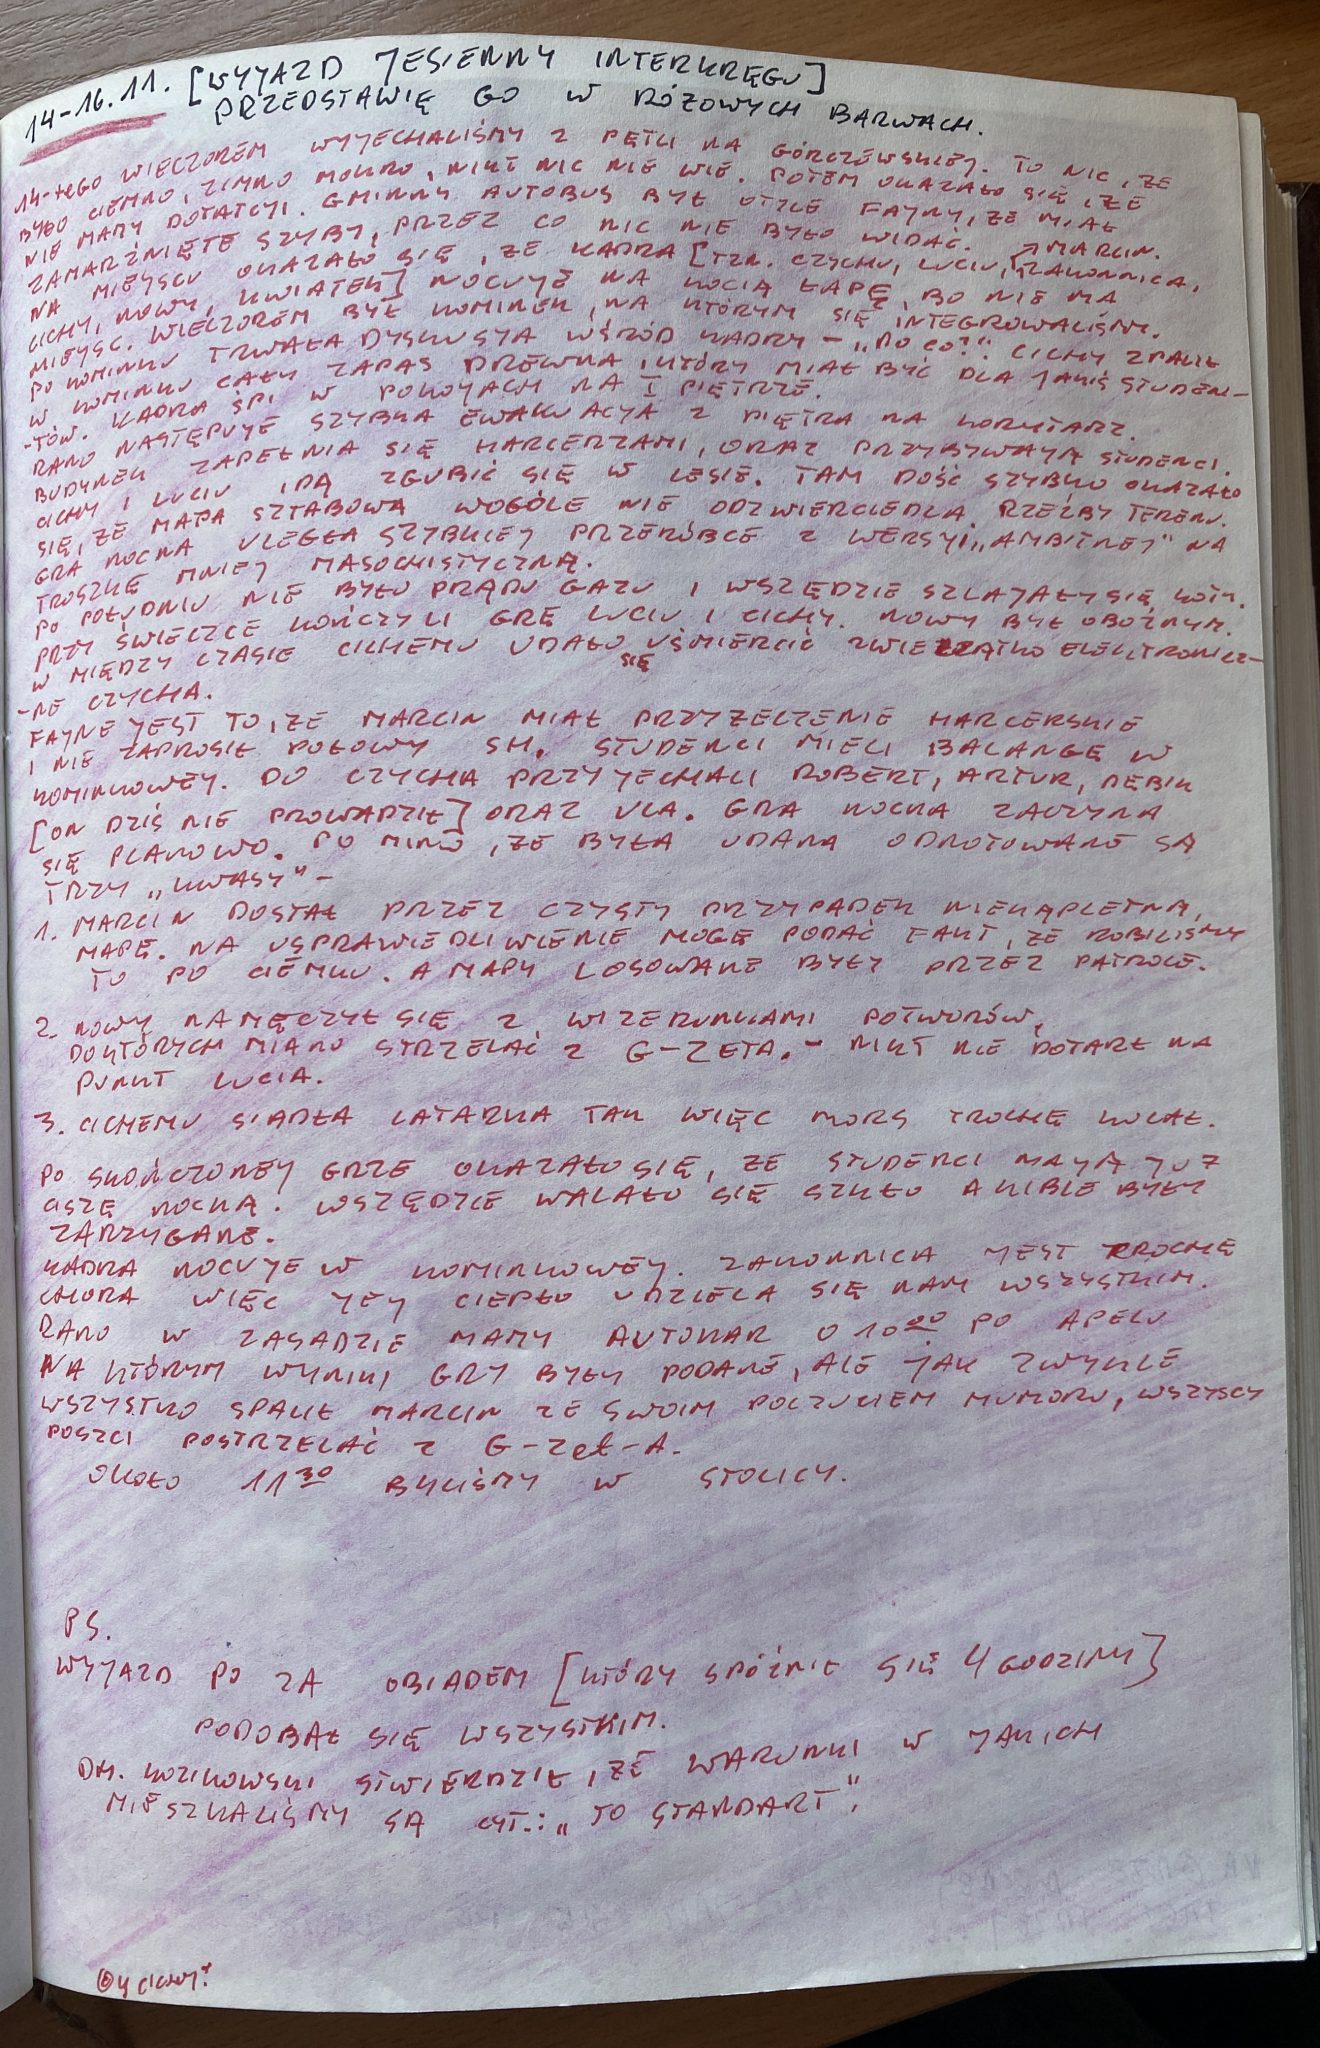 14-16.11. [WYJAZD JESIENNY INTERKRĘGU]
PRZEDSTAWIĘ GO W RÓŻOWYCH BARWACH.
14-tEGO WIECZOREM WYJECHALIŚMY Z PĘTLI NA GÓRCZEWSKIEJ. TO NIC, ŻE
BYŁO CIEMNO, ZIMNO MOKRO, NIKT NIC NIE WIE. POTEM OKAZAŁO SIĘ, ŻE
NIE MAMY DOTACJI. GMINNY AUTOBUS BYŁ OTYLE FAJNY, ŻE MIAŁ
ZAMARZNIĘTE SZYBY, PRZEZ CO NIC NIE BYŁO WIDAĆ. MARCIN.
NA MIEJSCU OKAZAŁO SIĘ, ŻE KADRA [TZN. CZYCHU, LUCIU, ZAKONNICA,
CICHY, NOWY, KWIATEK] NOCUJE NA KOCIĄ ŁAPĘ, BO NIE MA
MIEJSC. WIECZOREM BYŁ KOMINEK, NA KTÓRYM SIĘ INTEGROWALIŚMY.
PO KOMINKU TRWAŁA DYSKUSJA WŚRÓD KADRY - „PO CO?". CICHY ZPALIŁ
W KOMINKU CAŁY ZAPAS DREWNA, KTÓRY MIAŁ BYĆ DLA JAKIŚ STUDEN-
-TÓW. KADRA ŚPI W POKOJACH NA I PIĘTRZE.
RANO NASTĘPUJE SZYBKA EWAKUACJA Z PIĘTRA NA KORYTARZ.
BUDYNEK ZAPEŁNIA SIĘ HARCERZAMI, ORAZ PRZYBYWAJĄ STUDENCI.
CICHY I LUCIU IDĄ ZGUBIĆ SIĘ W LESIE. TAM DOŚĆ SZYBKO OKAZAŁO
SIĘ, ŻE MAPA SZTABOWA WOGÓLE NIE ODZWIERCIEDLA RZEŹBY TERENU.
GRA NOCNA ULEGŁA SZYBKIEJ PRZERÓBCE Z WERSJI „AMBITNEJ" NA
TROSZKĘ MNIEJ MASOCHISTYCZNĄ.
PO POŁUDNIU NIE BYŁO PRĄDU GAZU I WSZĘDZIE SZLAJAŁY SIĘ KOTY.
PRZY ŚWIECZCE KOŃCZYLI GRĘ LUCIU I CICHY. NOWY BYŁ OBOŹNYM.
W MIĘDZY CZASIE CICHEMU UDAŁO SIĘ UŚMIERCIĆ ZWIERZĄTKO ELEKTRONICZ-
-NE CZYCHA.
FAJNE JEST TO, ŻE MARCIN MIAŁ PRZYŻECZENIE HARCERSKIE
I NIE ZAPROSIŁ POŁOWY SH. STUDENCI MIELI BALANGĘ W
KOMINKOWEJ. DO CZYCHA PRZYJECHALI ROBERT, ARTUR, DEBIK
[ON DZIŚ NIE PROWADZIŁ] ORAZ ULA. GRA NOCNA ZACZYNA
SIĘ PLANOWO. PO MIMO, ŻE BYŁA UDANA ODNOTOWANE SĄ
TRZY „KWASY" -
1. MARCIN DOSTAŁ PRZEZ CZYSTY PRZYPADEK NIEKĄPLETNĄ,
MAPĘ. NA USPRAWIEDLIWIENIE MOGĘ PODAĆ FAKT, ŻE ROBILIŚMY
TO PO CIEMKU. A MAPY LOSOWANE BYŁY PRZEZ PATROLE.
2. NOWY NAMĘCZYŁ SIĘ Z WIZERUNKAMI POTWORÓW,
DO KTÓRYCH MIANO STRZELAĆ Z G-ZETA. - NIKT NIE DOTARŁ NA
PUNKT LUCIA.
3. CICHEMU SIADŁA LATARKA TAK WIĘC MORS TROCHĘ KULAŁ.
PO SKOŃCZONEJ GRZE OKAZAŁO SIĘ, ŻE STUDENCI MAJĄ JUŻ
CISZĘ NOCNĄ. WSZĘDZIE WALAŁO SIĘ SZKŁO A KIBLE BYŁY
ZARZYGANE.
KADRA NOCUJE W KOMINKOWEJ. ZAKONNICA JEST TROCHĘ
CHORA WIĘC JEJ CIEPŁO UDZIELA SIĘ NAM WSZYSTKIM.
RANO W ZASADZIE MAMY AUTOKAR O 10⁰⁰ PO APELU
NA KTÓRYM WYNIKI GRY BYŁY PODANE, ALE JAK ZWYKLE
WSZYSTKO SPALIŁ MARCIN ZE SWOIM POCZUCIEM HUMORU, WSZYSCY
POSZLI POSTRZELAĆ Z G-Zet-A.
OKOŁO 11³⁰ BYLIŚMY W STOLICY.
PS.
WYJAZD PO ZA OBIADEM [KTÓRY SPÓŹNIŁ SIĘ 4 GODZINY]
PODOBAŁ SIĘ WSZYSTKIM.
DH. KOZIKOWSKI STWIERDZIŁ, ŻE WARUNKI W JAKICH
MIESZKALIŚMY SĄ CYT.: „TO STANDART".